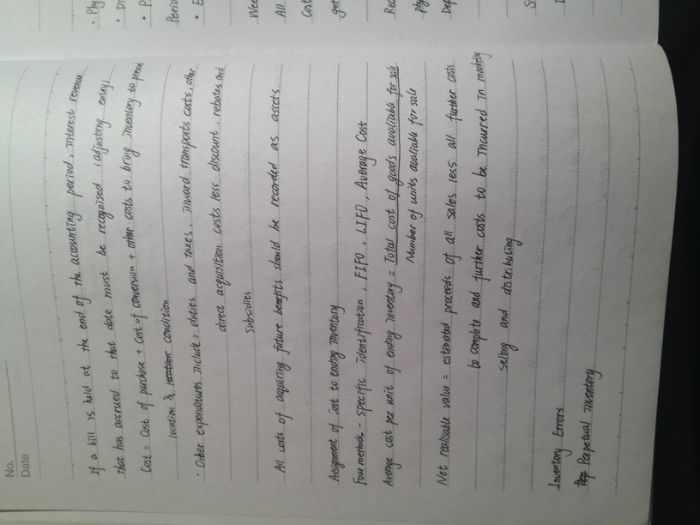 No.
Date
If a bill is held at the end of the accounting period, interest revenue
that has accrued to that date must be recognised (adjusting entry)
Cost = Cost of purchase + Cost of conversion + other costs to bring inventory to
location & condition
• Other expenditures include = duties and taxes, inward transports costs, other
direct acquisition costs less discount, rebates and
subsidies
All costs of acquiring future benefits should be recorded as assets
Assignment of cost to ending inventory
Four methods - specific identification, FIFO, LIFO, Average Cost
Average cost per unit of ending inventory = Total cost of goods available for sale
Number of units available for sale
Net realisable value = estimated proceeds of all sales less all further costs
to complete and further costs to be incurred in marketing
selling and distributing
Inventory Errors
Perpetual inventory
• Phy
• P
• E
All
Cost
Rec
Phy
Dep